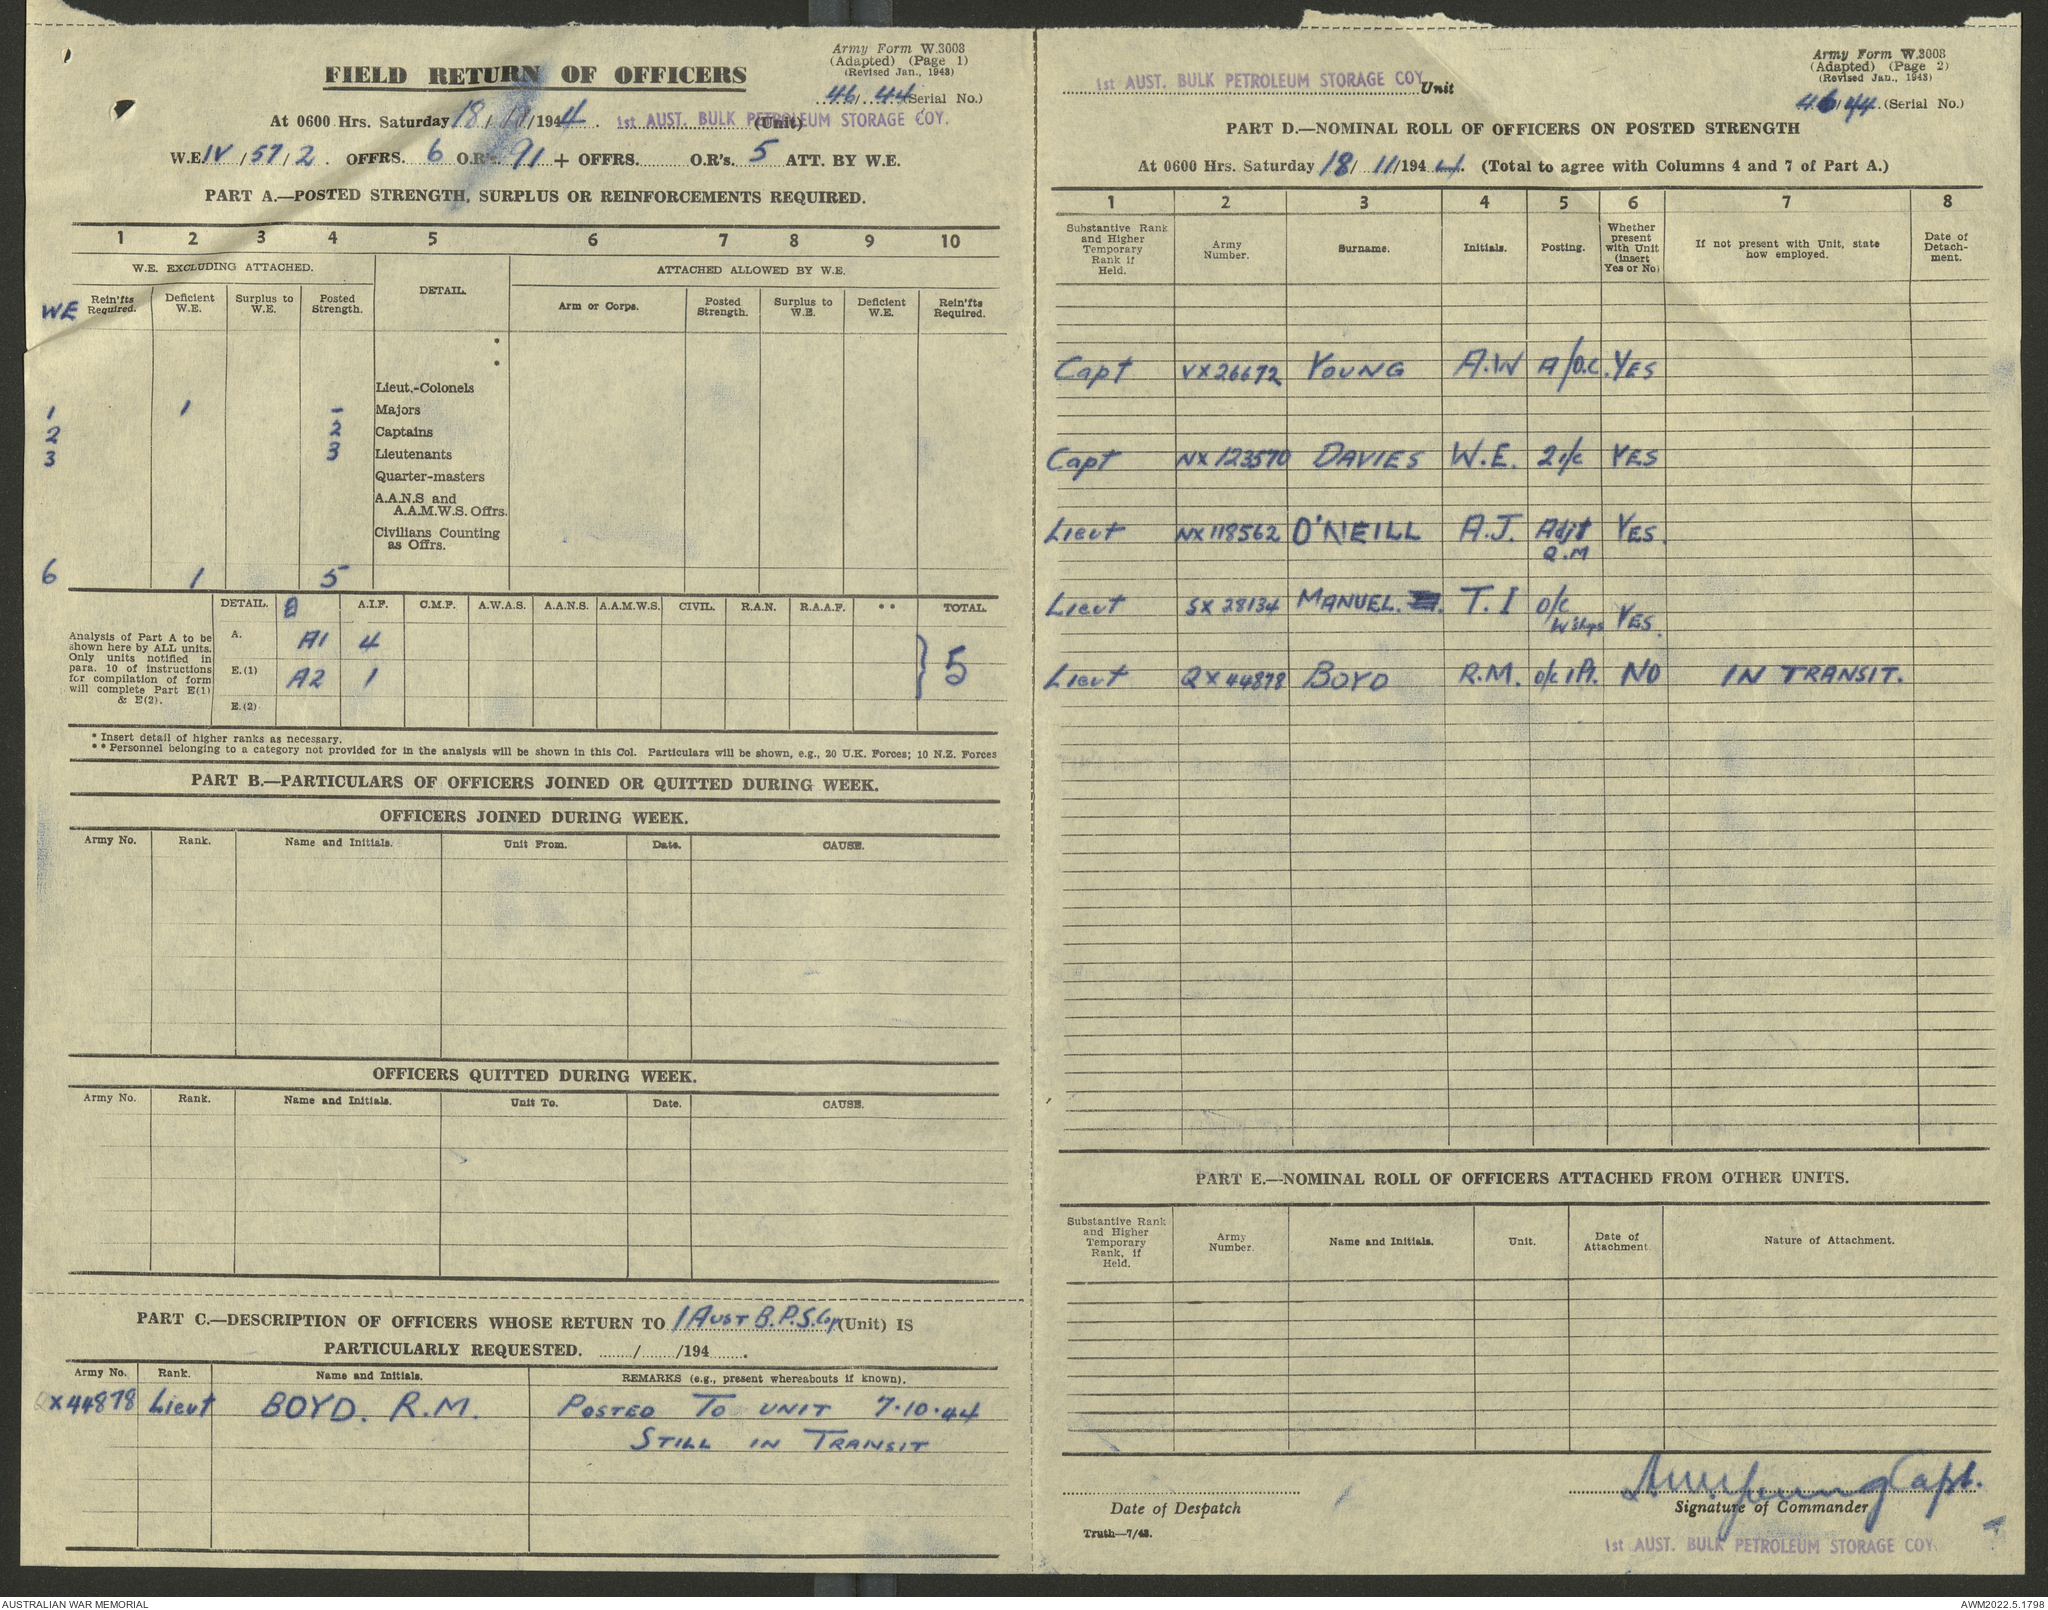 Army Form W.3008
(Adapted) (Page 1)
(Revised Jan., 1943)
FIELD RETURN OF OFFICERS
46/44 (Serial No.)
At 0600 Hrs. Saturday 18/11/1944. 1st AUST. BULK PETROLEUM STORAGE COY. (Unit)
W.E. IV/57/2. OFFRS. 6 O.R's. 91 + OFFRS. ........ O.R's. 5 ATT. BY W.E.
PART A.—POSTED STRENGTH, SURPLUS OR REINFORCEMENTS REQUIRED.
1 2 3 4 5 6 7 8 9 10
W.E. EXCLUDING ATTACHED. DETAIL. ATTACHED ALLOWED BY W.E.
WE Rein'fts Required. Deficient W.E. Surplus to W.E. Posted Strength. Arm or Corps. Posted Strength. Surplus to W.E. Deficient W.E. Rein'fts Required.
*
*
Lieut.-Colonels
1 1 – Majors
2 2 Captains
3 3 Lieutenants
Quarter-masters
A.A.N.S and
A.A.M.W.S. Offrs.
Civilians Counting
as Offrs.
6 1 5
DETAIL. A.I.F. C.M.F. A.W.A.S. A.A.N.S. A.A.M.W.S. CIVIL. R.A.N. R.A.A.F. ** TOTAL.
Analysis of Part A to be
shown here by ALL units.
Only units notified in
para. 10 of instructions
for compilation of form
will complete Part E(1)
& E(2).
A. A1 4
E.(1) A2 1
} 5
E.(2)
* Insert detail of higher ranks as necessary.
** Personnel belonging to a category not provided for in the analysis will be shown in this Col. Particulars will be shown, e.g., 20 U.K. Forces; 10 N.Z. Forces
PART B.—PARTICULARS OF OFFICERS JOINED OR QUITTED DURING WEEK.
OFFICERS JOINED DURING WEEK.
Army No. Rank. Name and Initials. Unit From. Date. CAUSE.
OFFICERS QUITTED DURING WEEK.
Army No. Rank. Name and Initials. Unit To. Date. CAUSE.
PART C.—DESCRIPTION OF OFFICERS WHOSE RETURN TO 1 AUST B.P.S. Coy (Unit) IS
PARTICULARLY REQUESTED. ......../......../194.......
Army No. Rank. Name and Initials. REMARKS (e.g., present whereabouts if known).
QX44878 Lieut BOYD. R.M. POSTED TO UNIT 7.10.44
STILL IN TRANSIT
Army Form W.3008
(Adapted) (Page 2)
(Revised Jan., 1943)
1st AUST. BULK PETROLEUM STORAGE COY. Unit
46/44. (Serial No.)
PART D.—NOMINAL ROLL OF OFFICERS ON POSTED STRENGTH
At 0600 Hrs. Saturday 18/11/1944. (Total to agree with Columns 4 and 7 of Part A.)
1 2 3 4 5 6 7 8
Substantive Rank and Higher Temporary Rank if Held. Army Number. Surname. Initials. Posting. Whether present with Unit (insert Yes or No) If not present with Unit, state how employed. Date of Detachment.
Capt VX26672 YOUNG A.W A/O.C. YES
Capt NX123570 DAVIES W.E. 2i/c YES
Lieut NX118562 O'NEILL A.J. Adjt YES.
Q.M
Lieut SX28134 MANUEL. T.I O/C
W'shops YES.
Lieut QX44878 BOYD R.M. o/c 1 Pl. NO IN TRANSIT.
PART E.—NOMINAL ROLL OF OFFICERS ATTACHED FROM OTHER UNITS.
Substantive Rank and Higher Temporary Rank, if Held. Army Number. Name and Initials. Unit. Date of Attachment. Nature of Attachment.
A.W. Young Capt.
Date of Despatch Signature of Commander
Truth—7/43.
1st AUST. BULK PETROLEUM STORAGE COY.
AUSTRALIAN WAR MEMORIAL
AWM2022.5.1798